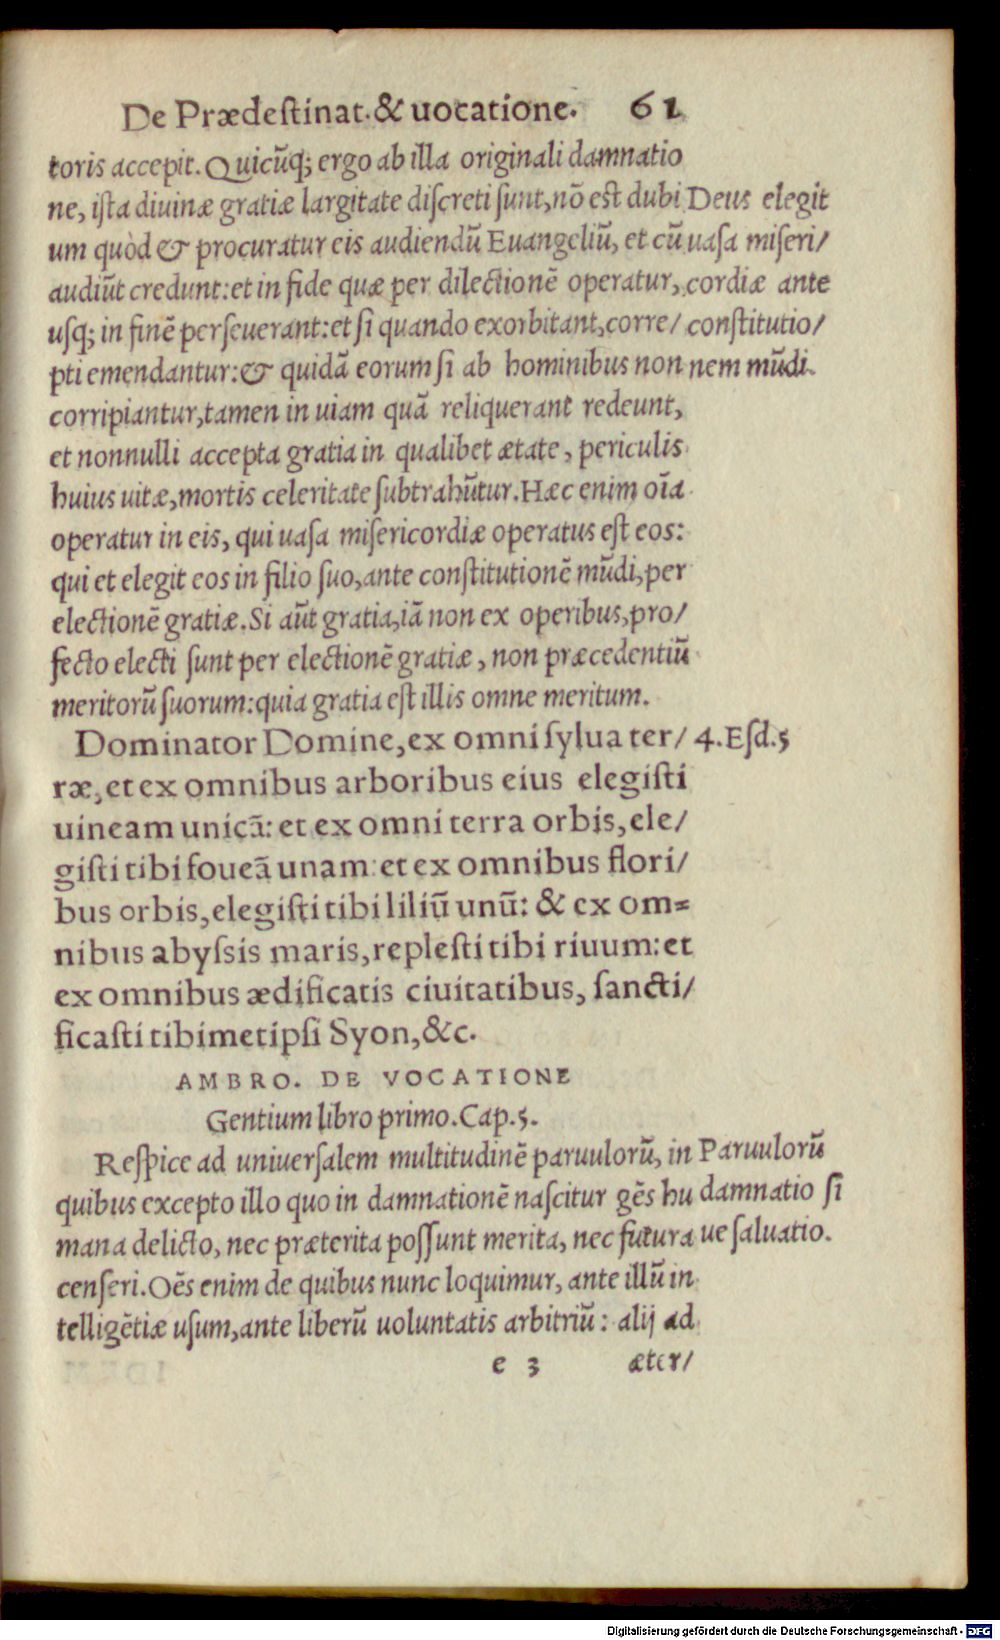 De Prædestinat. & uocatione. 61
toris accepit. Quicūq; ergo ab illa originali damnatio
ne, ista diuinæ gratiæ largitate discreti sunt, nō est dubi
um quòd & procuratur eis audiendū Euangeliū, et cū
audiūt credunt: et in fide quæ per dilectionē operatur,
usq; in finē perseuerant: et si quando exorbitant, corre/
pti emendantur: & quidā eorum si ab hominibus non
corripiantur, tamen in uiam quā reliquerant redeunt,
et nonnulli accepta gratia in qualibet ætate, periculis
huius uitæ, mortis celeritate subtrahūtur. Hæc enim oīa
operatur in eis, qui uasa misericordiæ operatus est eos:
qui et elegit eos in filio suo, ante constitutionē mūdi, per
electionē gratiæ. Si aūt gratia, iā non ex operibus, pro/
fecto electi sunt per electionē gratiæ, non præcedentiū
meritorū suorum: quia gratia est illis omne meritum.
Deus elegit
uasa miseri/
cordiæ ante
constitutio/
nem mūdi.
Dominator Domine, ex omni sylua ter/
ræ, et ex omnibus arboribus eius elegisti
uineam unicā: et ex omni terra orbis, ele/
gisti tibi foueā unam: et ex omnibus flori/
bus orbis, elegisti tibi liliū unū: & ex om=
nibus abyssis maris, replesti tibi riuum: et
ex omnibus ædificatis ciuitatibus, sancti/
ficasti tibimetipsi Syon, &c.
4. Esd. 5
AMBRO. DE VOCATIONE
Gentium libro primo. Cap. 5.
Respice ad uniuersalem multitudinē paruulorū, in
quibus excepto illo quo in damnationē nascitur gēs hu
mana delicto, nec præterita possunt merita, nec futura
censeri. Oēs enim de quibus nunc loquimur, ante illū in
telligētiæ usum, ante liberū uoluntatis arbitriū: alij ad
Paruulorū
damnatio si
ue saluatio.
e 3 æter/
Digitalisierung gefördert durch die Deutsche Forschungsgemeinschaft - DFG